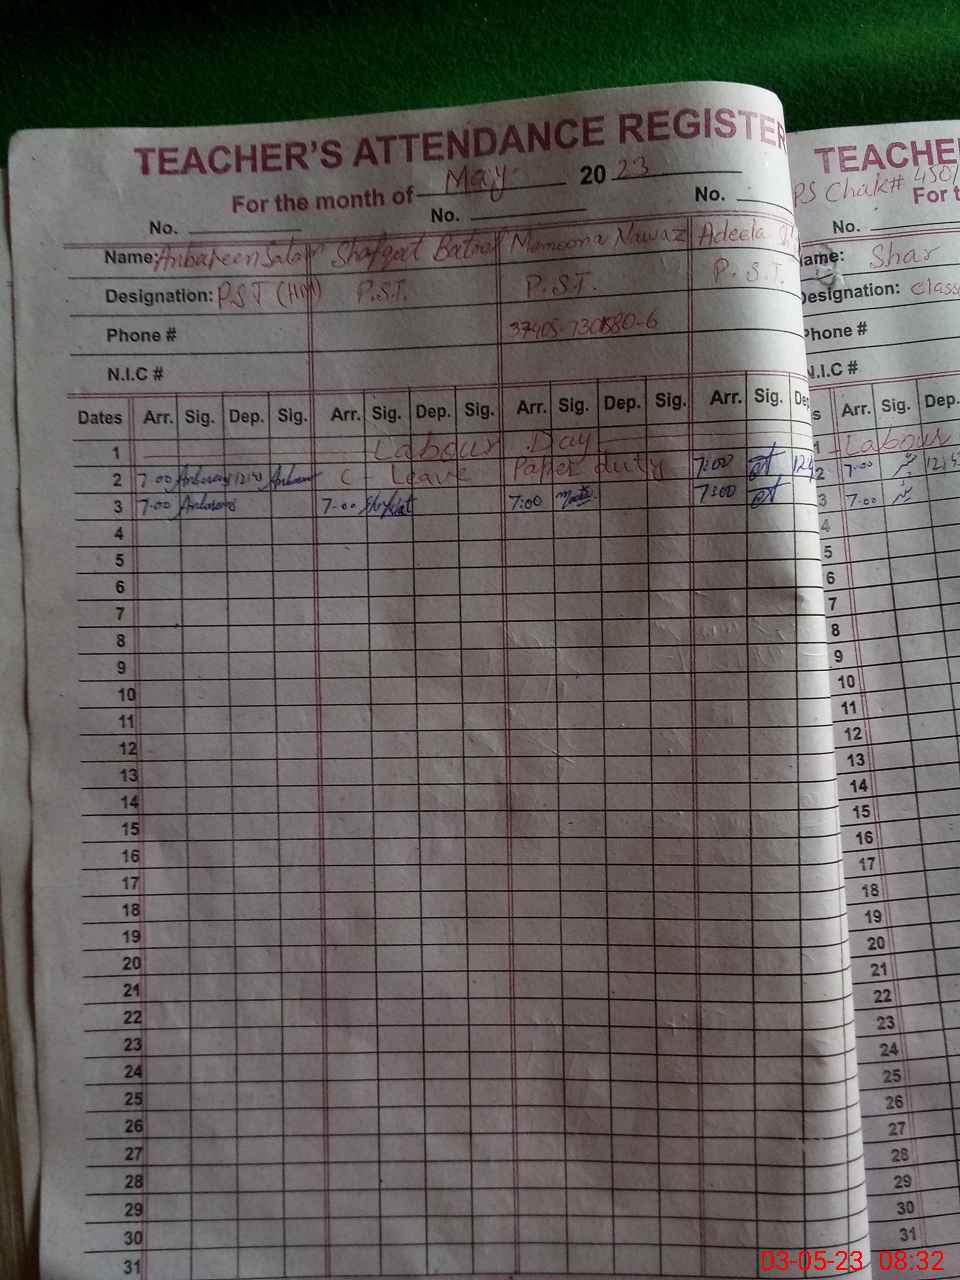 TEACHER'S ATTENDANCE REGISTER
For the month of May 20 23
No. No. No.
Name: Anbareen Shafqat Mamoona Nawaz Adeela
Designation: P.S.T (HM) P.S.T. P.S.T. P.S.T.
Phone #
N.I.C #
Dates Arr. Sig. Dep. Sig. Arr. Sig. Dep. Sig. Arr. Sig. Dep. Sig. Arr. Sig. Dep
1 Labour Day
2 7-00 C - Leave Paper duty 7:00
3 7-00 7-00 7:00 7:00
4
5
6
7
8
9
10
11
12
13
14
15
16
17
18
19
20
21
22
23
24
25
26
27
28
29
30
31
TEACHE
PS Chak#
For t
No.
ame: Shar
Designation: Class
Phone #
N.I.C #
s Arr. Sig. Dep.
1 Labour
2 7-00
3 7-00
4
5
6
7
8
9
10
11
12
13
14
15
16
17
18
19
20
21
22
23
24
25
26
27
28
29
30
31
03-05-23 08:32